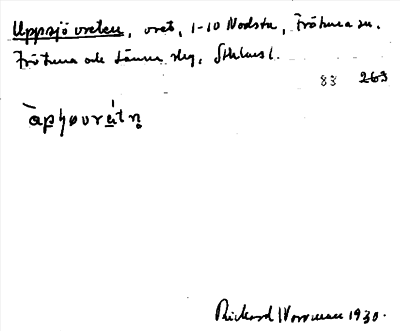 Uppsjövreten, vret, 1-10 Nodsta, Frötuna sn.
Frötuna och Länna skg, Sthlms l.
83 263
Richard Norrman 1930.